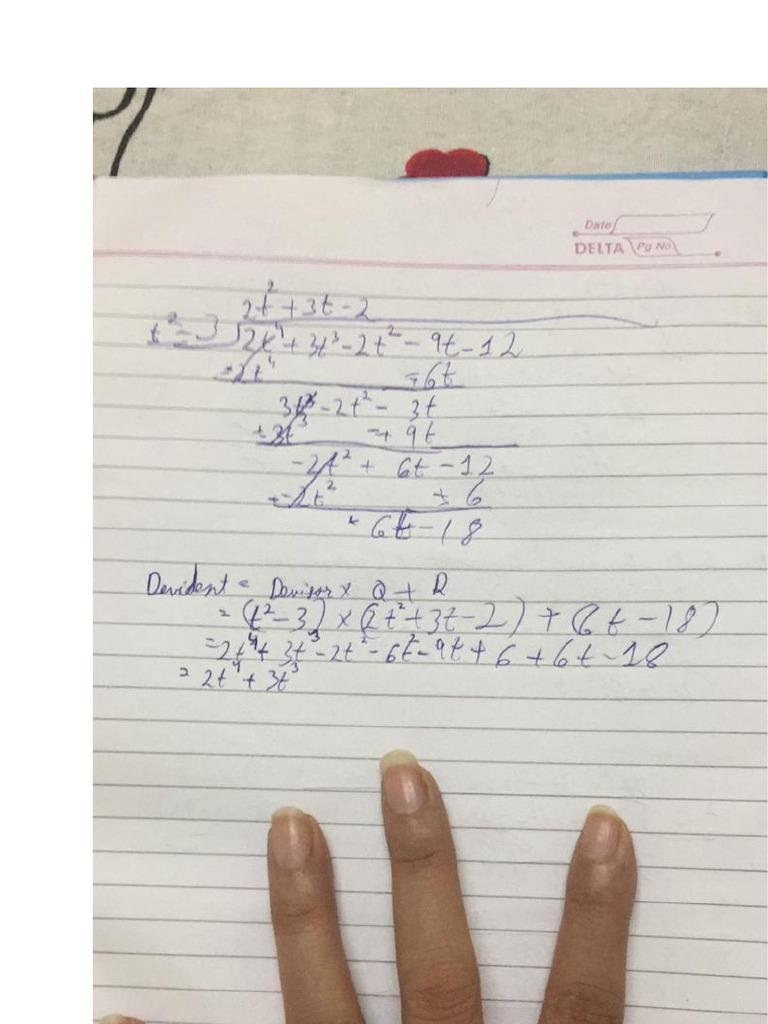 Date
DELTA Pg No.
2t² + 3t - 2
t² - 3 ) 2t⁴ + 3t³ - 2t² - 9t - 12
2t⁴ 6t
3t³ - 2t² - 3t
3t³ 9t
-2t² + 6t - 12
-2t² ± 6
6t - 18
Devident = Devisor × Q + R
= (t² - 3) × (2t² + 3t - 2) + (6t - 18)
= 2t⁴ + 3t³ - 2t² - 6t² - 9t + 6 + 6t - 18
= 2t⁴ + 3t³